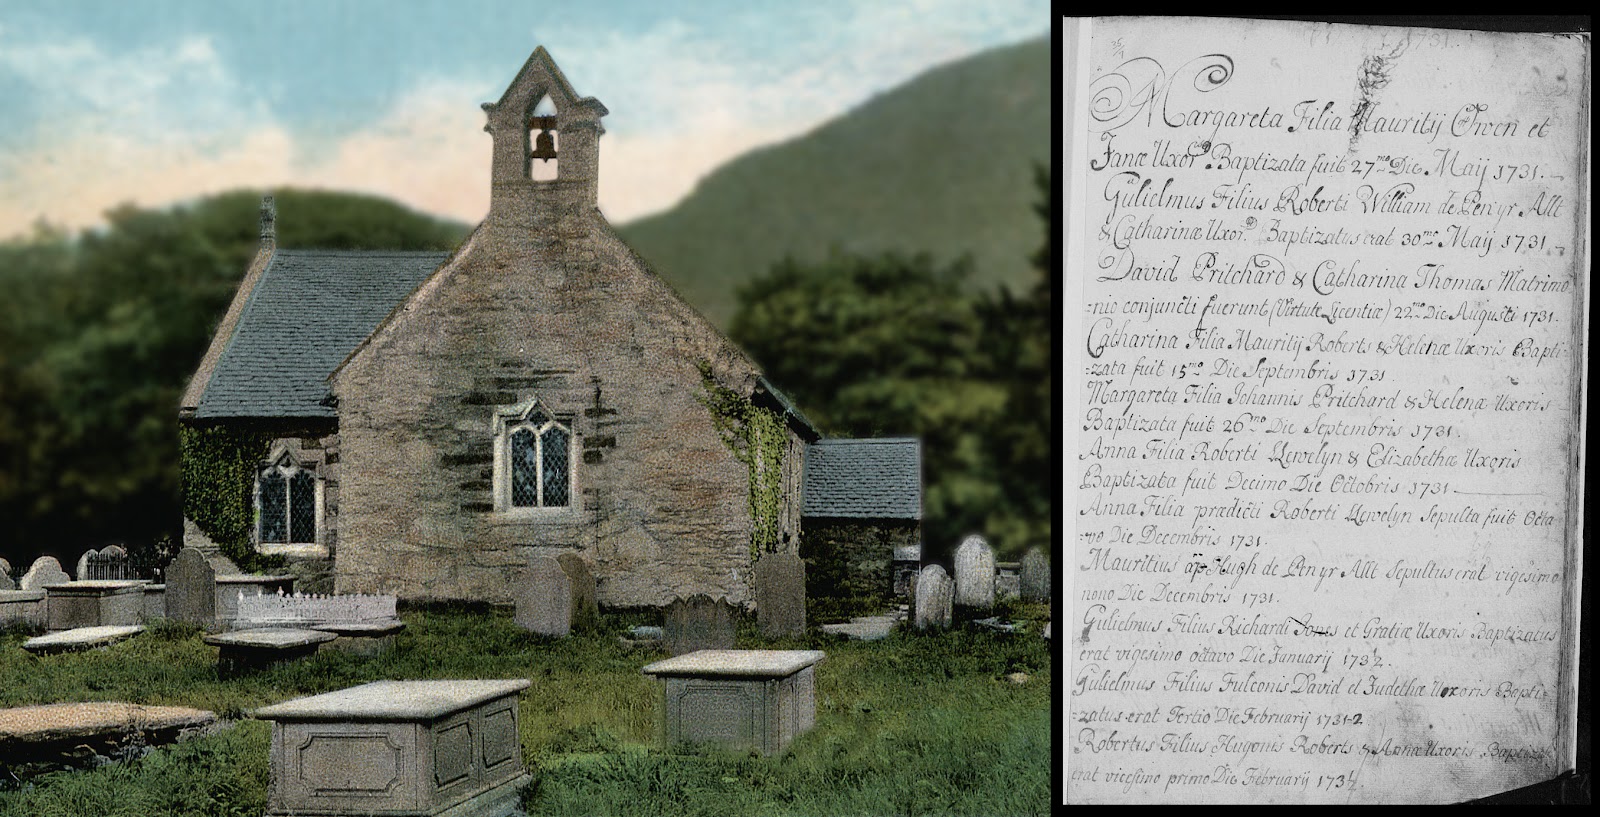 1731.
Margareta Filia Mauritij Owen et
Janæ Uxor. Baptizata fuit 27mo Die Maij 1731.
Gulielmus Filius Roberti William de Pen'yr Allt
& Catharinæ Uxor. Baptizatus erat 30mo Maij 1731
David Pritchard & Catharina Thomas Matrimo
=nio conjuncti fuerunt (Virtute Licentiæ) 22mo Die Augusti 1731.
Catharina Filia Mauritij Roberts & Helenæ Uxoris Bapti=
=zata fuit 15mo Die Septembris 1731
Margareta Filia Johannis Pritchard & Helenæ Uxoris
Baptizata fuit 26mo Die Septembris 1731.
Anna Filia Roberti Llewelyn & Elizabethæ Uxoris
Baptizata fuit Decimo Die Octobris 1731
Anna Filia prædicti Roberti Llewelyn Sepulta fuit Octa
=vo Die Decembris 1731.
Mauritius ap Hugh de Pen yr Allt Sepultus erat vigesimo
nono Die Decembris 1731.
Gulielmus Filius Richardi Jones et Gratiæ Uxoris Baptizatus
erat vigesimo octavo Die Januarij 1732.
Gulielmus Filius Fulconis David et Judethæ Uxoris Bapti=
=zatus erat Tertio Die Februarij 1731-2.
Robertus Filius Hugonis Roberts & Annæ Uxoris Baptizat
erat vicesimo primo Die Februarij